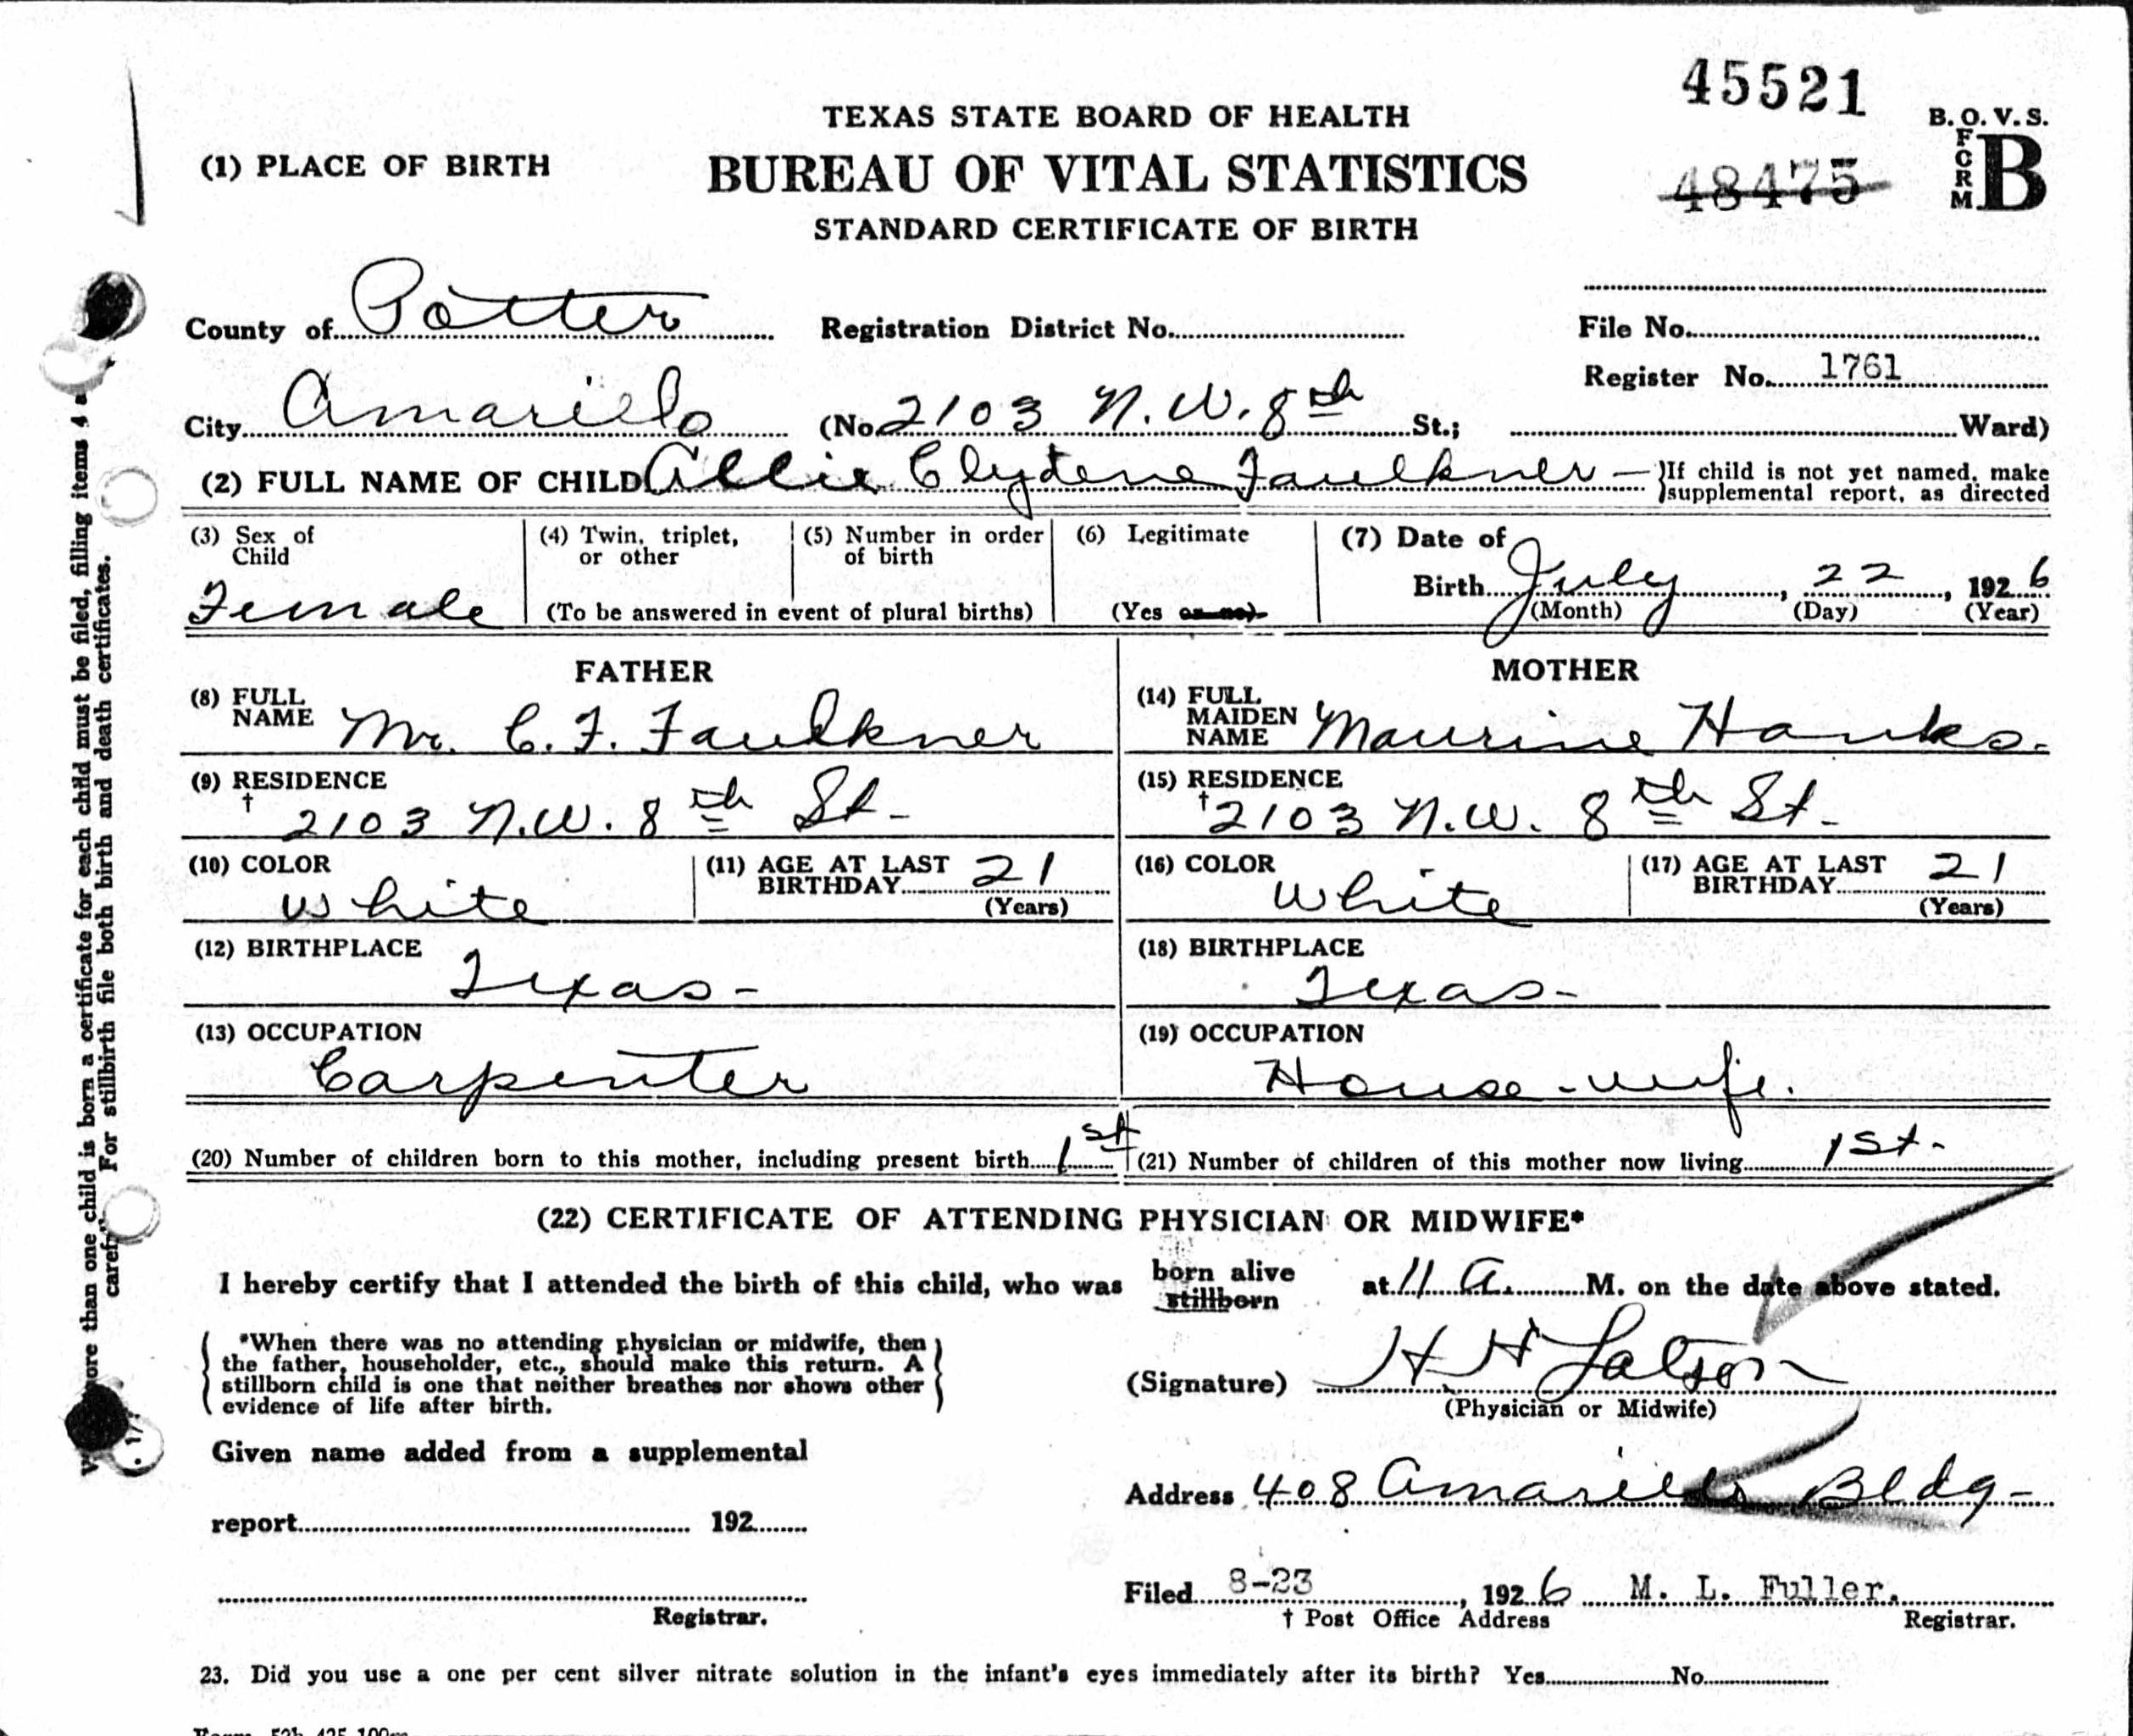 45521
TEXAS STATE BOARD OF HEALTH
B. O. V. S.
FORM B
(1) PLACE OF BIRTH
BUREAU OF VITAL STATISTICS
48475
STANDARD CERTIFICATE OF BIRTH
County of Potter Registration District No. File No.
Register No. 1761
City Amarillo (No. 2103 N.W. 8th St.; Ward)
(2) FULL NAME OF CHILD Allie Clydene Faulkner — }If child is not yet named, make
}supplemental report, as directed
(3) Sex of Child Female
(4) Twin, triplet, or other
(5) Number in order of birth
(To be answered in event of plural births)
(6) Legitimate
(Yes or no)
(7) Date of
Birth July, 22, 1926
(Month) (Day) (Year)
FATHER
(8) FULL NAME Mr. C. F. Faulkner
(9) RESIDENCE
† 2103 N.W. 8th St-
(10) COLOR White
(11) AGE AT LAST BIRTHDAY 21
(Years)
(12) BIRTHPLACE Texas-
(13) OCCUPATION
Carpenter
MOTHER
(14) FULL MAIDEN NAME Maurine Hanks.
(15) RESIDENCE
† 2103 N.W. 8th St-
(16) COLOR White
(17) AGE AT LAST BIRTHDAY 21
(Years)
(18) BIRTHPLACE Texas-
(19) OCCUPATION
House-wife.
(20) Number of children born to this mother, including present birth 1st (21) Number of children of this mother now living 1st-
(22) CERTIFICATE OF ATTENDING PHYSICIAN OR MIDWIFE*
I hereby certify that I attended the birth of this child, who was born alive stillborn at 11 A. M. on the date above stated.
*When there was no attending physician or midwife, then
the father, householder, etc., should make this return. A
stillborn child is one that neither breathes nor shows other
evidence of life after birth.
(Signature) H H Latson
(Physician or Midwife)
Given name added from a supplemental
report 192
Registrar.
Address 408 Amarillo Bldg-
Filed 8-23, 1926 M. L. Fuller.
† Post Office Address Registrar.
23. Did you use a one per cent silver nitrate solution in the infant's eyes immediately after its birth? Yes No
more than one child is born a certificate for each child must be filed, filling items 4 a
For stillbirth file both birth and death certificates.